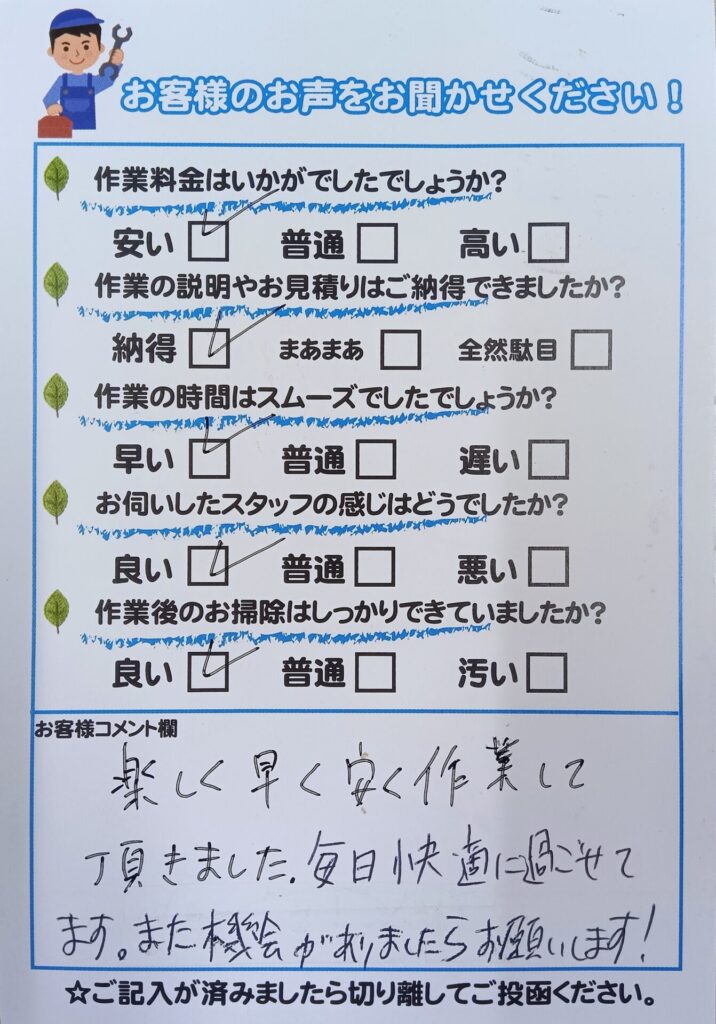 お客様のお声をお聞かせください！
作業料金はいかがでしたでしょうか?
安い 普通 高い
作業の説明やお見積りはご納得できましたか?
納得 まあまあ 全然駄目
作業の時間はスムーズでしたでしょうか?
早い 普通 遅い
お伺いしたスタッフの感じはどうでしたか?
良い 普通 悪い
作業後のお掃除はしっかりできていましたか?
良い 普通 汚い
お客様コメント欄
楽しく早く安く作業して
頂きました。毎日快適に過ごせて
ます。また機会がありましたらお願いします!
☆ご記入が済みましたら切り離してご投函ください。